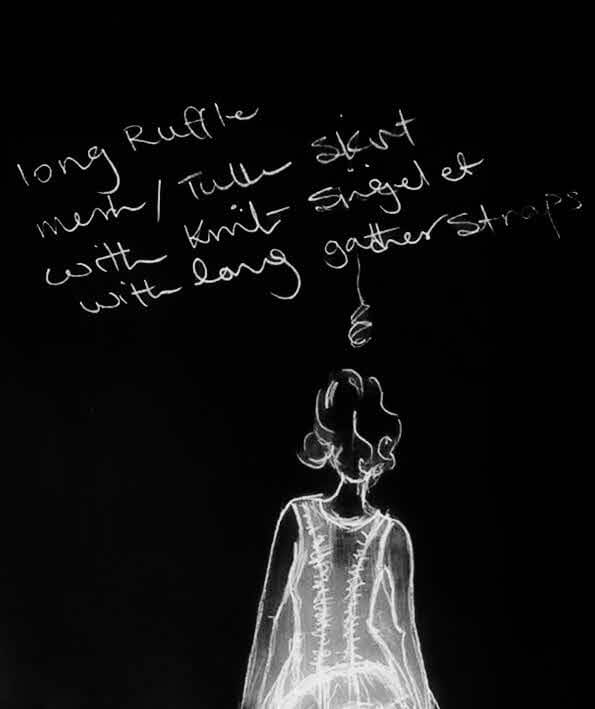 long Ruffle
mesh / Tulle skirt
with Knit singlet
with long gather straps